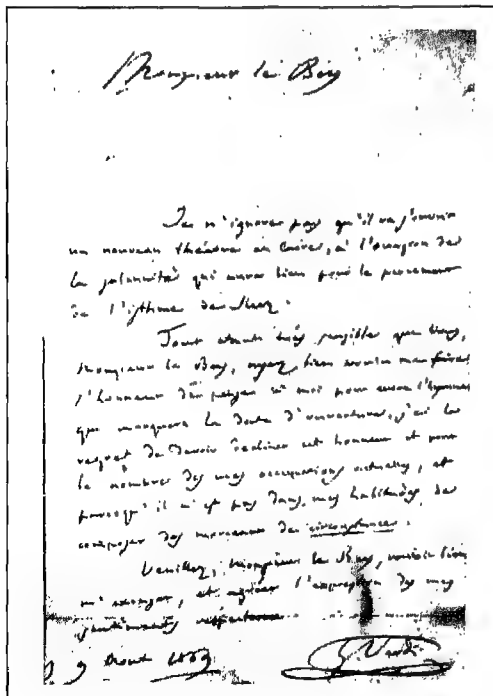 Monsieur le Bey
Je n'ignore pas qu'il va s'ouvrir
un nouveau théatre au Caire, à l'occasion de
la solennité qui aura lieu pour le percement
de l'isthme de Suez.
Tout etant très sensible que Vous,
Monsieur le Bey, ayez bien voulu me faire
l'honneur de penser à moi pour l'hymne
que marquera la date d'ouverture, j'ai le
regret de devoir decliner cet honneur et pour
le nombre de mes occupations actuelles, et
parcequ'il n'est pas dans mes habitudes de
composer des morceaux de circonstances.
Veuillez, Monsieur le Bey, vouloir bien
m'excuser, et agréer l'expression de mes
sentiments
9 Aout 1869 G. Verdi